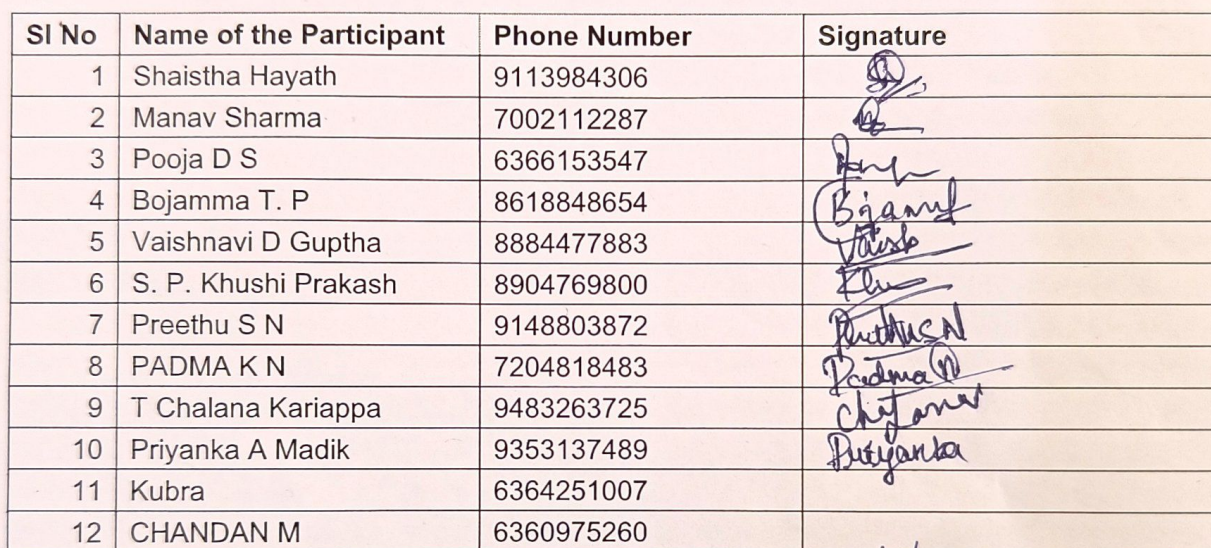 Sl No Name of the Participant Phone Number Signature
1 Shaistha Hayath 9113984306
2 Manav Sharma 7002112287
3 Pooja D S 6366153547
4 Bojamma T. P 8618848654
5 Vaishnavi D Guptha 8884477883
6 S. P. Khushi Prakash 8904769800 Khu
7 Preethu S N 9148803872 Preethu S N
8 PADMA K N 7204818483 Padma N
9 T Chalana Kariappa 9483263725
10 Priyanka A Madik 9353137489 Priyanka
11 Kubra 6364251007
12 CHANDAN M 6360975260